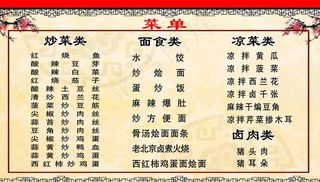 菜单
炒菜类
红烧鱼
酸辣豆芽
酸辣白菜
红烧茄子
酸辣土豆丝
清炒西兰花
菠菜炒豆筋
尖椒炒肉丝
蒜苔炒肉丝
豆角炒肉丝
尖椒炒鸡蛋
黄瓜炒鸭血
蒜黄炒鸡蛋
西红柿炒鸡蛋
面食类
水饺
炒烩面
蛋炒饭
麻辣爆肚
炒方便面
骨汤烩面面条
老北京卤煮火烧
西红柿鸡蛋面烩面
凉菜类
凉拌黄瓜
凉拌菠菜
凉拌西兰花
凉拌卤千张
麻辣干煸豆角
凉拌芹菜掺木耳
卤肉类
猪头肉
猪耳朵